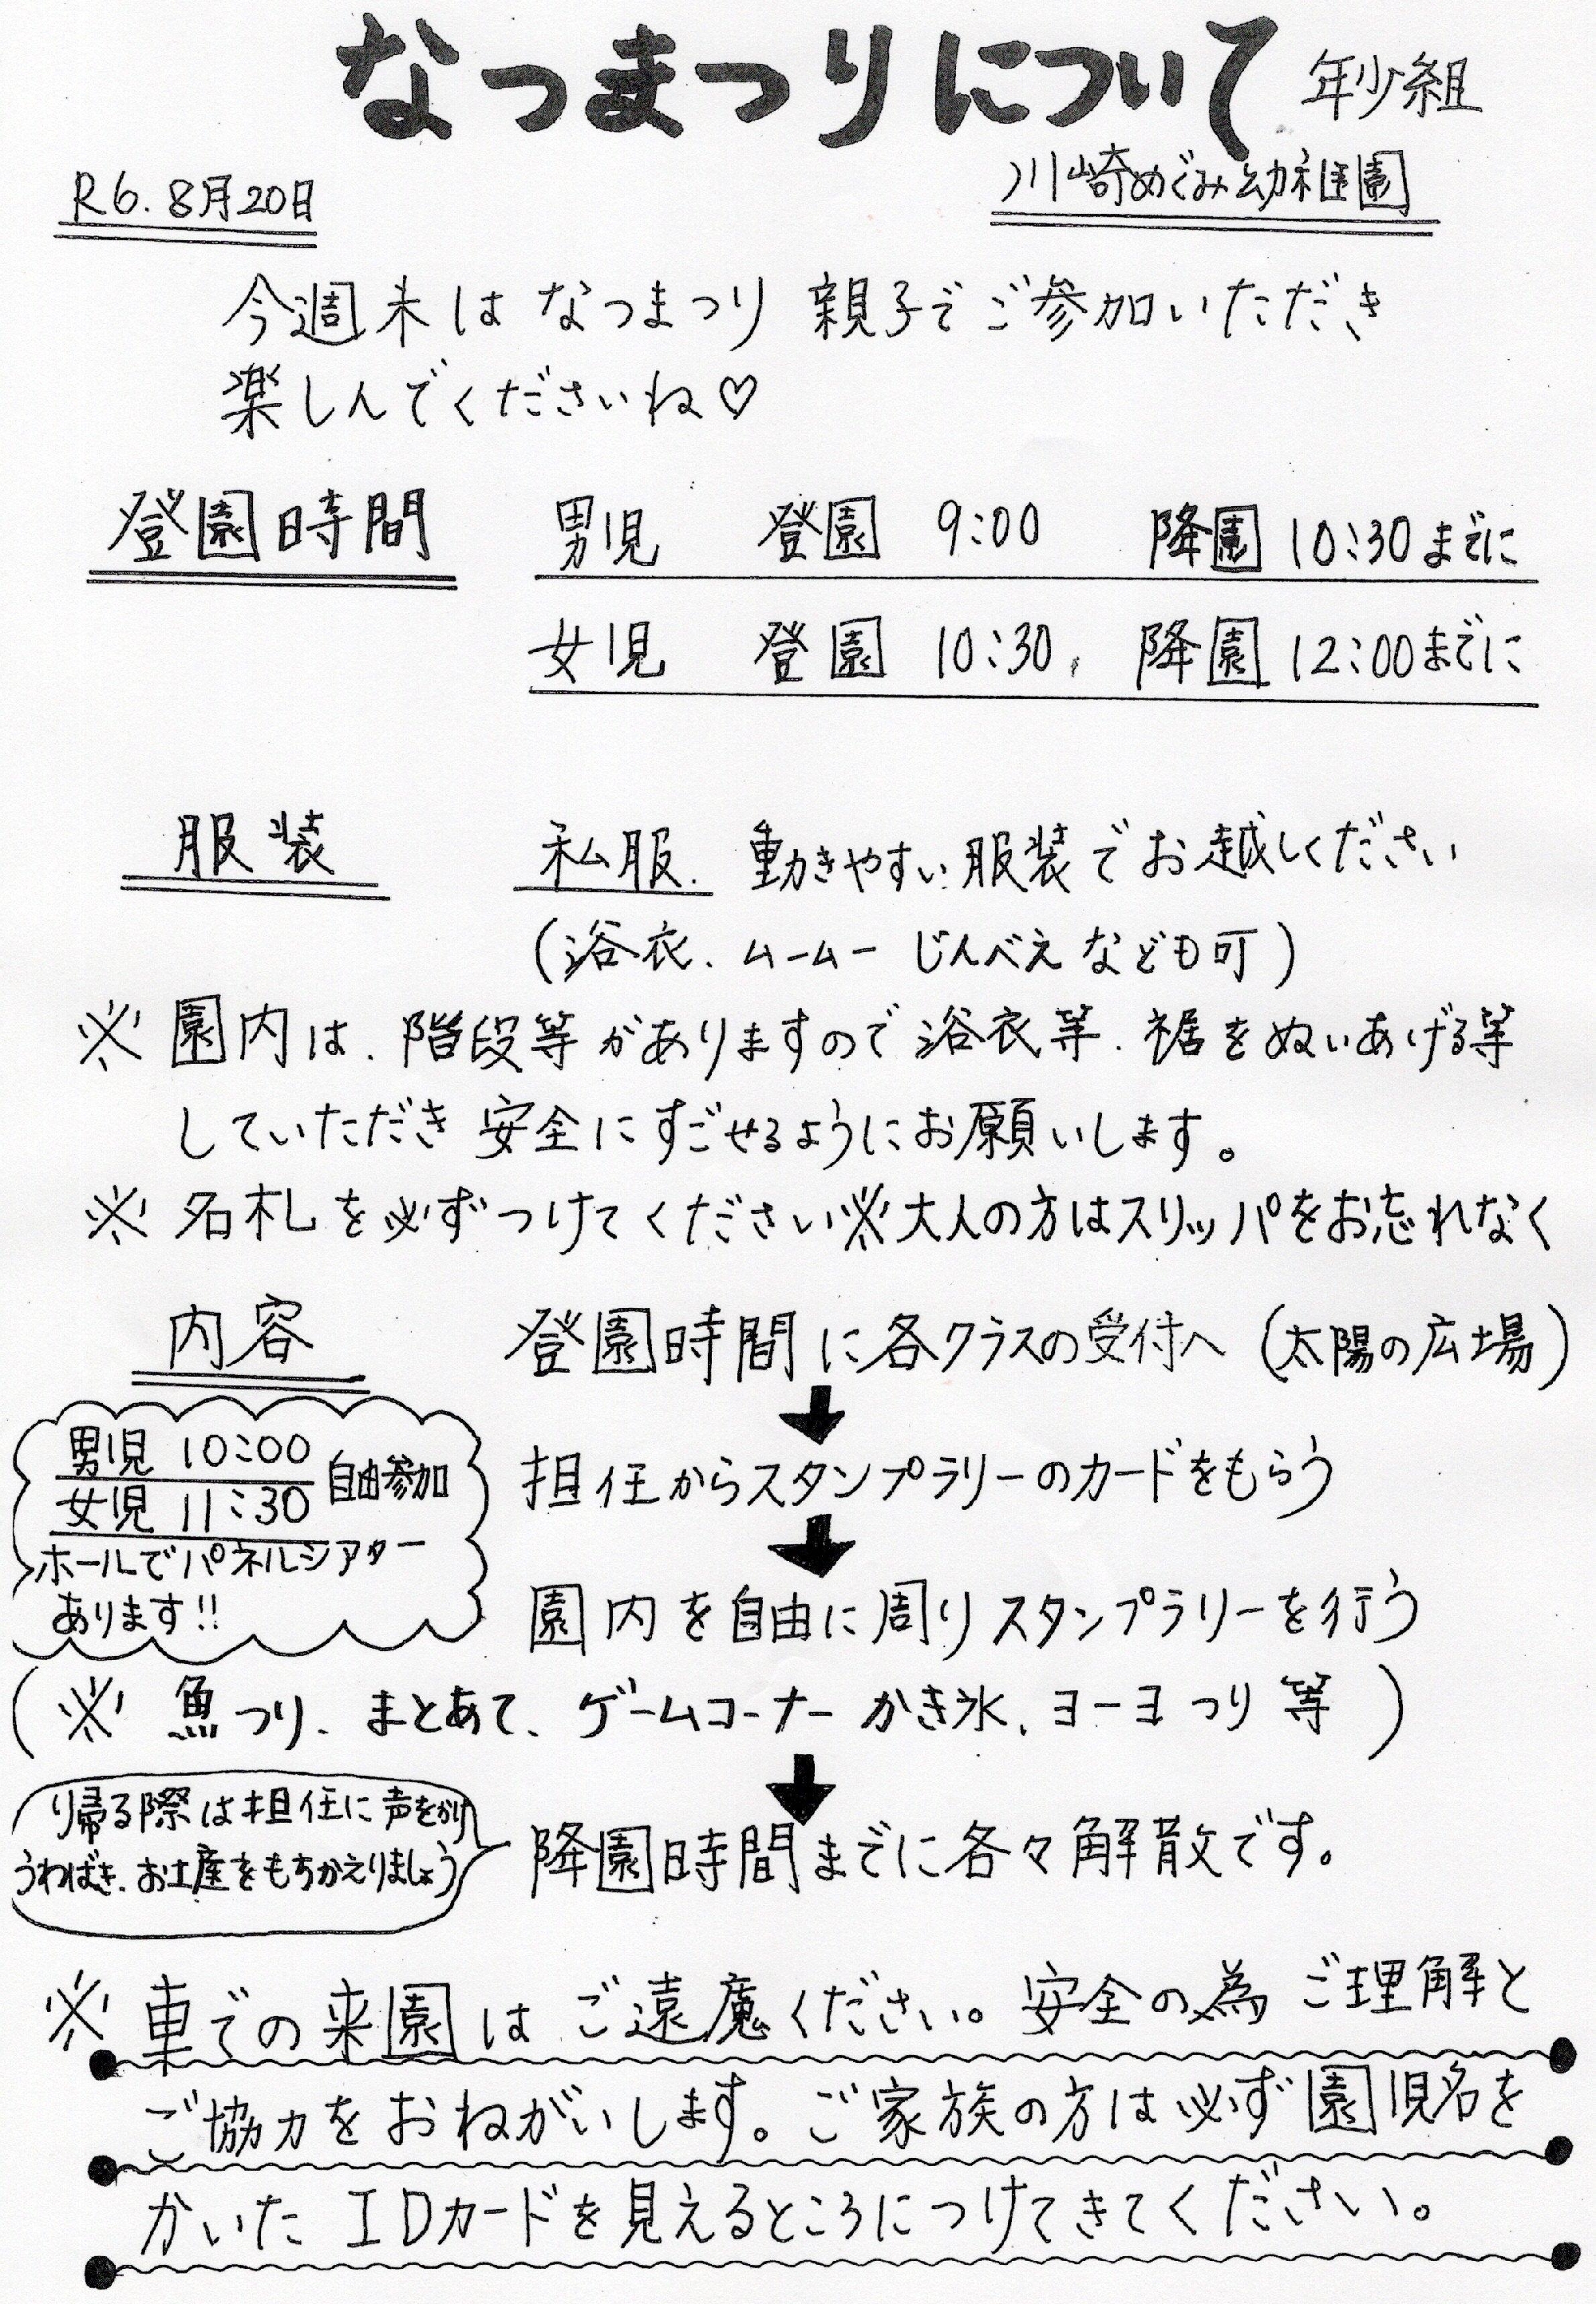 なつまつりについて 年少組
R6.8月20日
川崎めぐみ幼稚園
今週末はなつまつり 親子でご参加いただき
楽しんでくださいね♡
登園時間 男児 登園 9:00 降園 10:30までに
女児 登園 10:30, 降園 12:00までに
服装 私服. 動きやすい服装でお越しください
(浴衣、ムームー じんべえなども可)
※ 園内は、階段等がありますので浴衣等、裾をぬいあげる等
していただき 安全にすごせるようにお願いします。
※ 名札を必ずつけてください※大人の方はスリッパをお忘れなく
内容 登園時間に各クラスの受付へ (太陽の広場)
↓
男児 10:00
女児 11:30 自由参加
ホールでパネルシアター
あります!!
担任からスタンプラリーのカードをもらう
↓
園内を自由に周りスタンプラリーを行う
(※ 魚つり、まとあて、ゲームコーナー かき氷、ヨーヨつり 等)
↓
帰る際は担任に声をかけ
うわばき、お土産をもちかえりましょう
降園時間までに各々解散です。
※ 車での来園はご遠慮ください。安全の為 ご理解と
ご協力をおねがいします。ご家族の方は必ず園児名を
かいた IDカードを見えるところにつけてきてください。